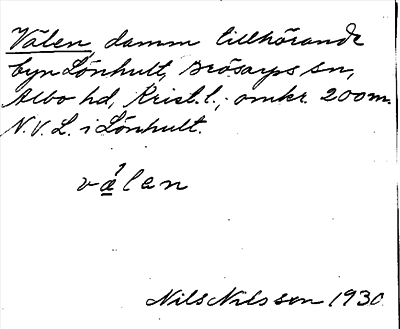 Välen, damm tillhörande
byn Lönhult, Brösarps sn,
Albo hd, Krist. l.; omkr. 200 m.
N.V. L. i Lönhult.
vä́lan
Nils Nilsson 1930